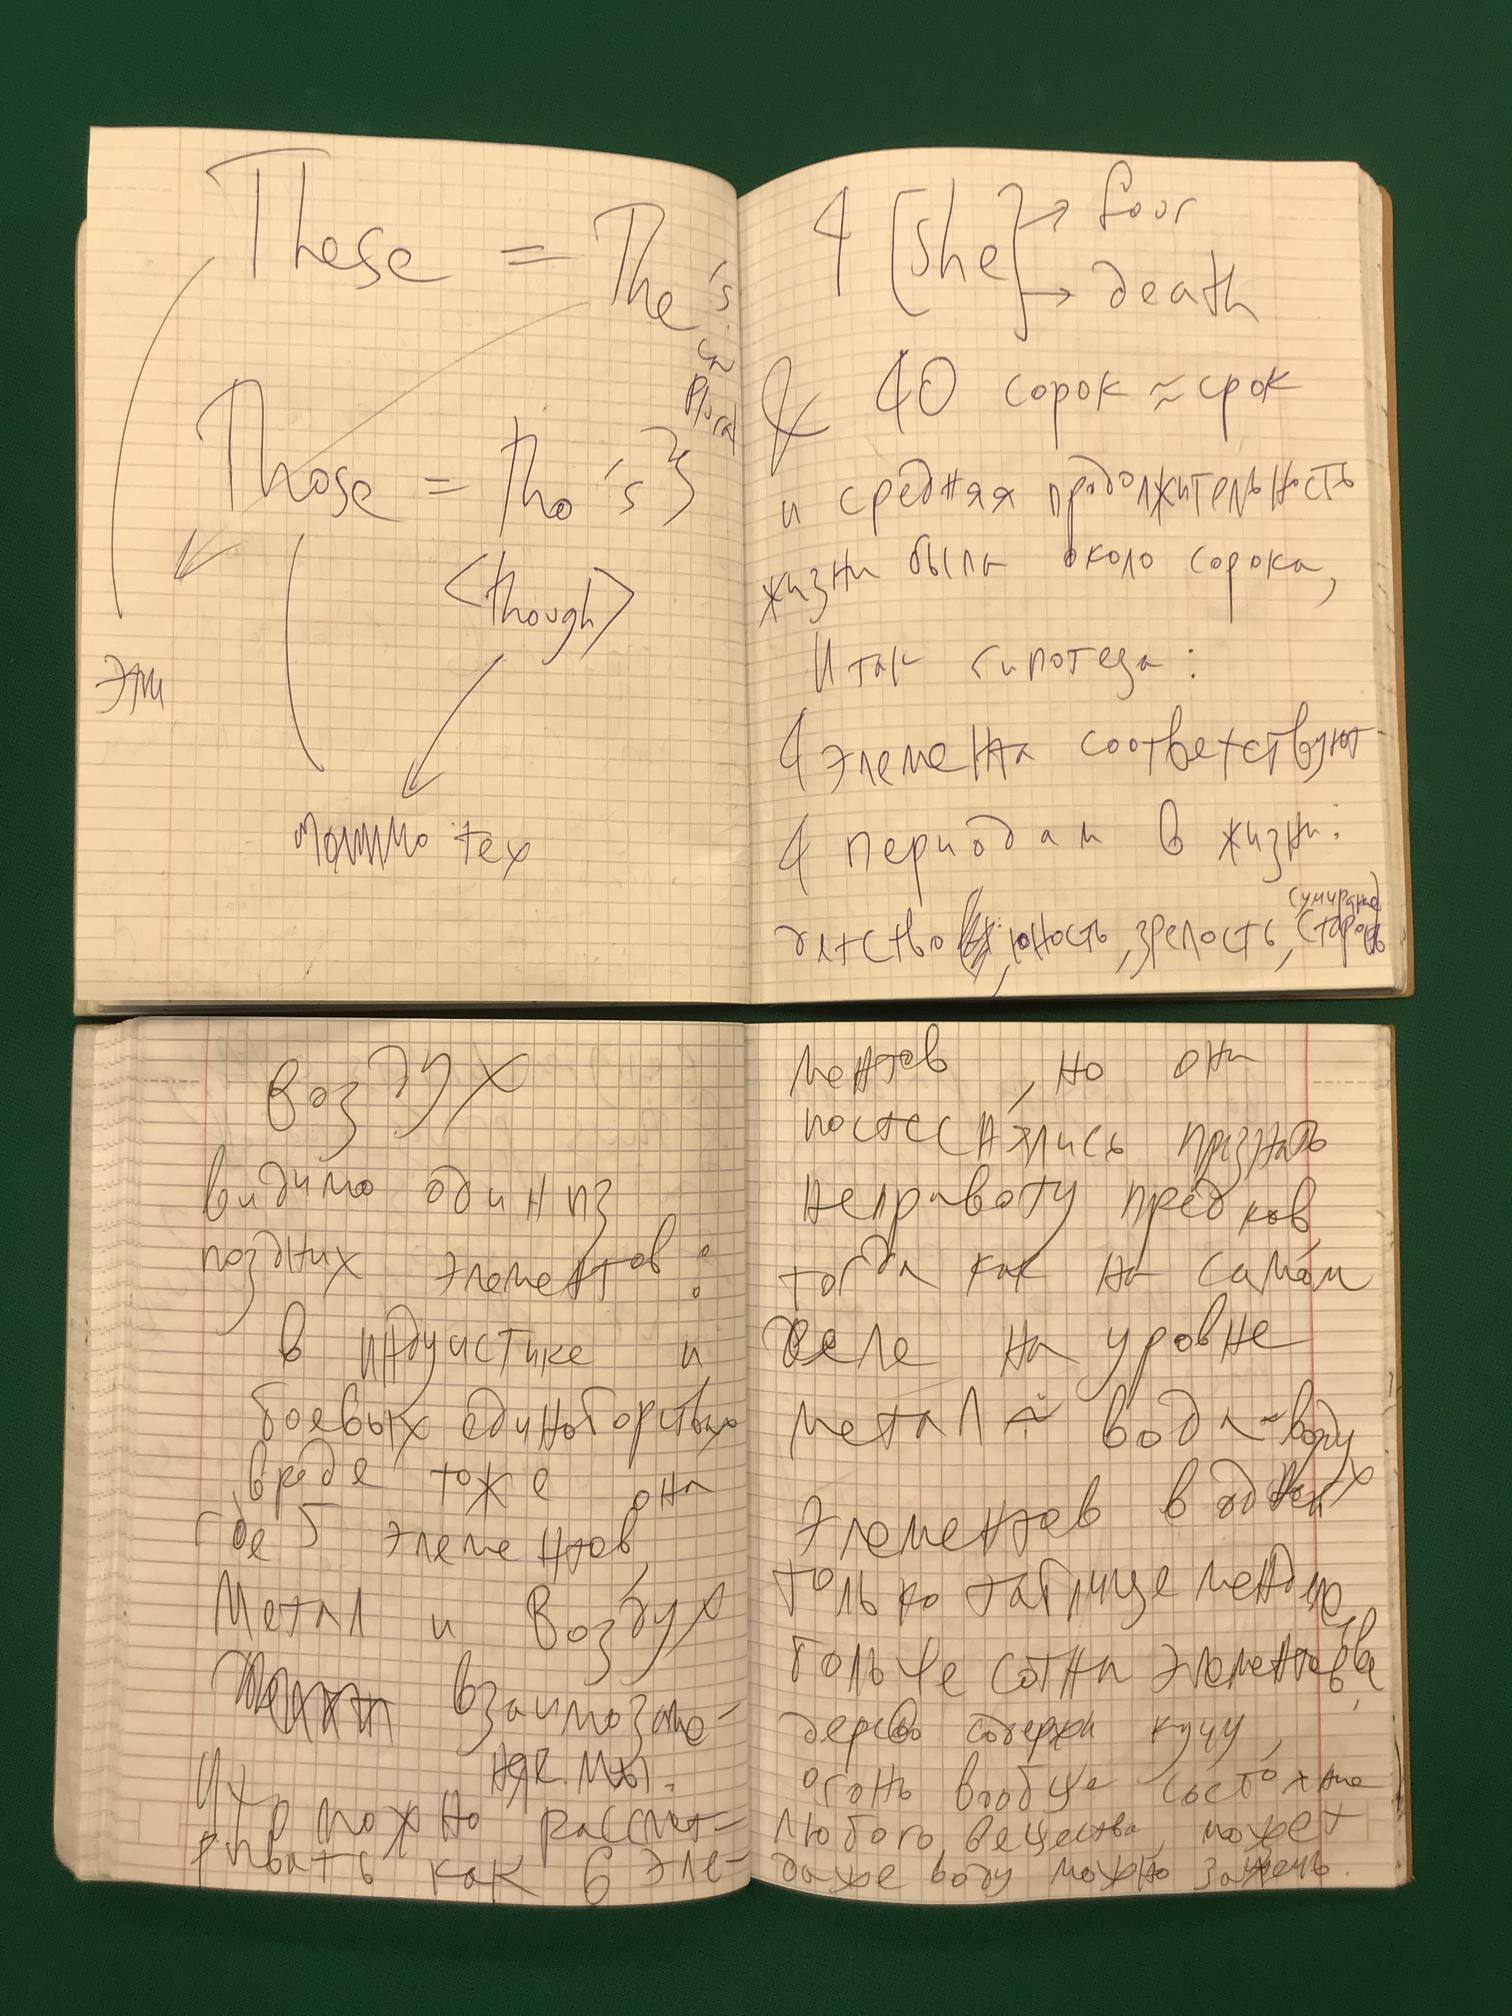 These = The's
in
Plural
Those = tho's}
<though>
эти
помимо тех
4 [she] → four
→ death
& 40 сорок ≈ срок
и средняя продолжительность
жизни была около сорока,
Итак гипотеза:
4 элемента соответствуют
4 периодам в жизни:
детство, юность, зрелость, старость
Воздух
видимо один из
поздних элементов:
в индуистике и
боевых единоборствах
вроде тоже она
где 5 элементов,
Метал и Воздух
взаимозаме-
няемы.
Что можно рассмот-
ривать как 6 эле-
ментов, но они
постеснялись признать
неправоту предков,
тогда как на самом
деле на уровне
метал ~ вода ~ воду
элементов в
только таблице менделе
больше сотни элементов,
дерево содержи кучу,
огонь вообще состояние
любого вещества, может
даже воду можно зажечь.